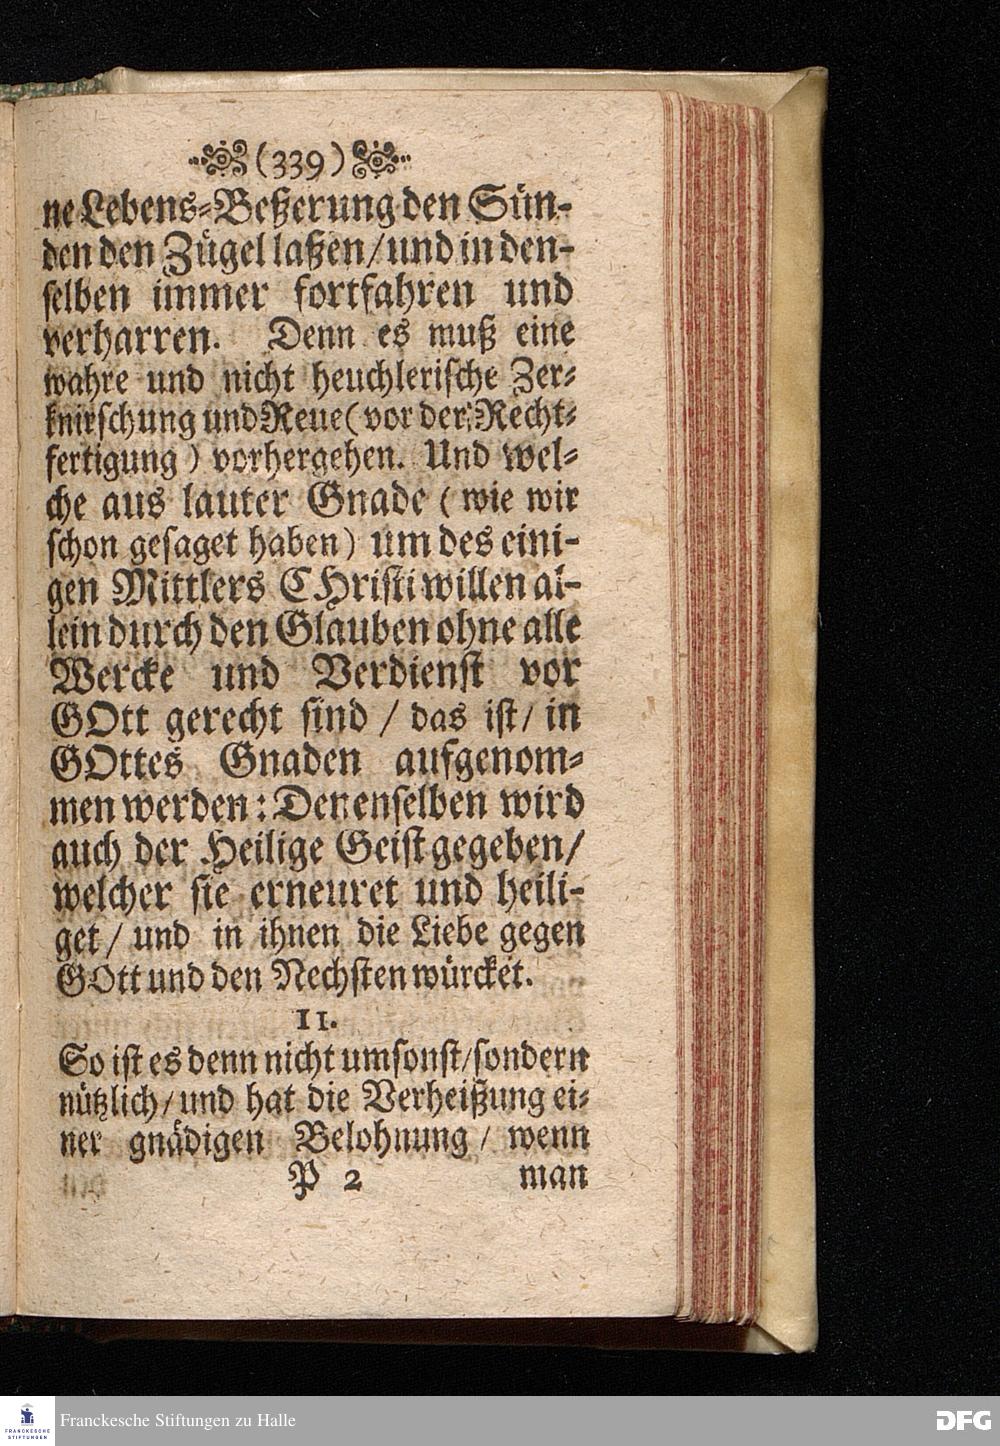 (339)
ne Lebens-Beßerung den Sün-
den den Zügel laßen/und in den-
selben immer fortfahren und
verharren. Denn es muß eine
wahre und nicht heuchlerische Zer-
knirschung und Reue (vor der Recht-
fertigung) vorhergehen. Und wel-
che aus lauter Gnade (wie wir
schon gesaget haben) um des eini-
gen Mittlers CHristi willen al-
lein durch den Glauben ohne alle
Wercke und Verdienst vor
GOtt gerecht sind / das ist/ in
GOttes Gnaden aufgenom-
men werden: Denenselben wird
auch der Heilige Geist gegeben/
welcher sie erneuret und heili-
get/ und in ihnen die Liebe gegen
GOtt und den Nechsten würcket.
II.
So ist es denn nicht umsonst/sondern
nützlich/und hat die Verheißung ei-
ner gnädigen Belohnung / wenn
P 2 man
Franckesche Stiftungen zu Halle
FRANCKESCHE
STIFTUNGEN
DFG